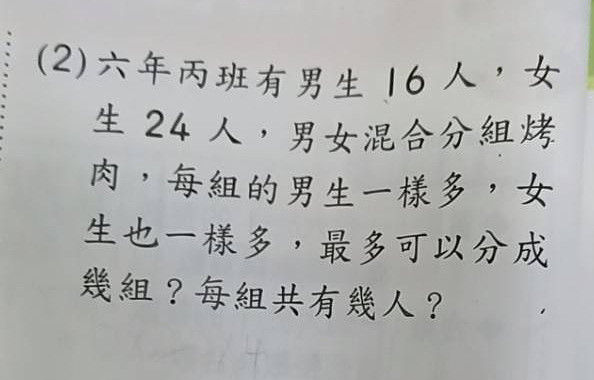 (2)六年丙班有男生 16 人，女
生 24 人，男女混合分組烤
肉，每組的男生一樣多，女
生也一樣多，最多可以分成
幾組？每組共有幾人？